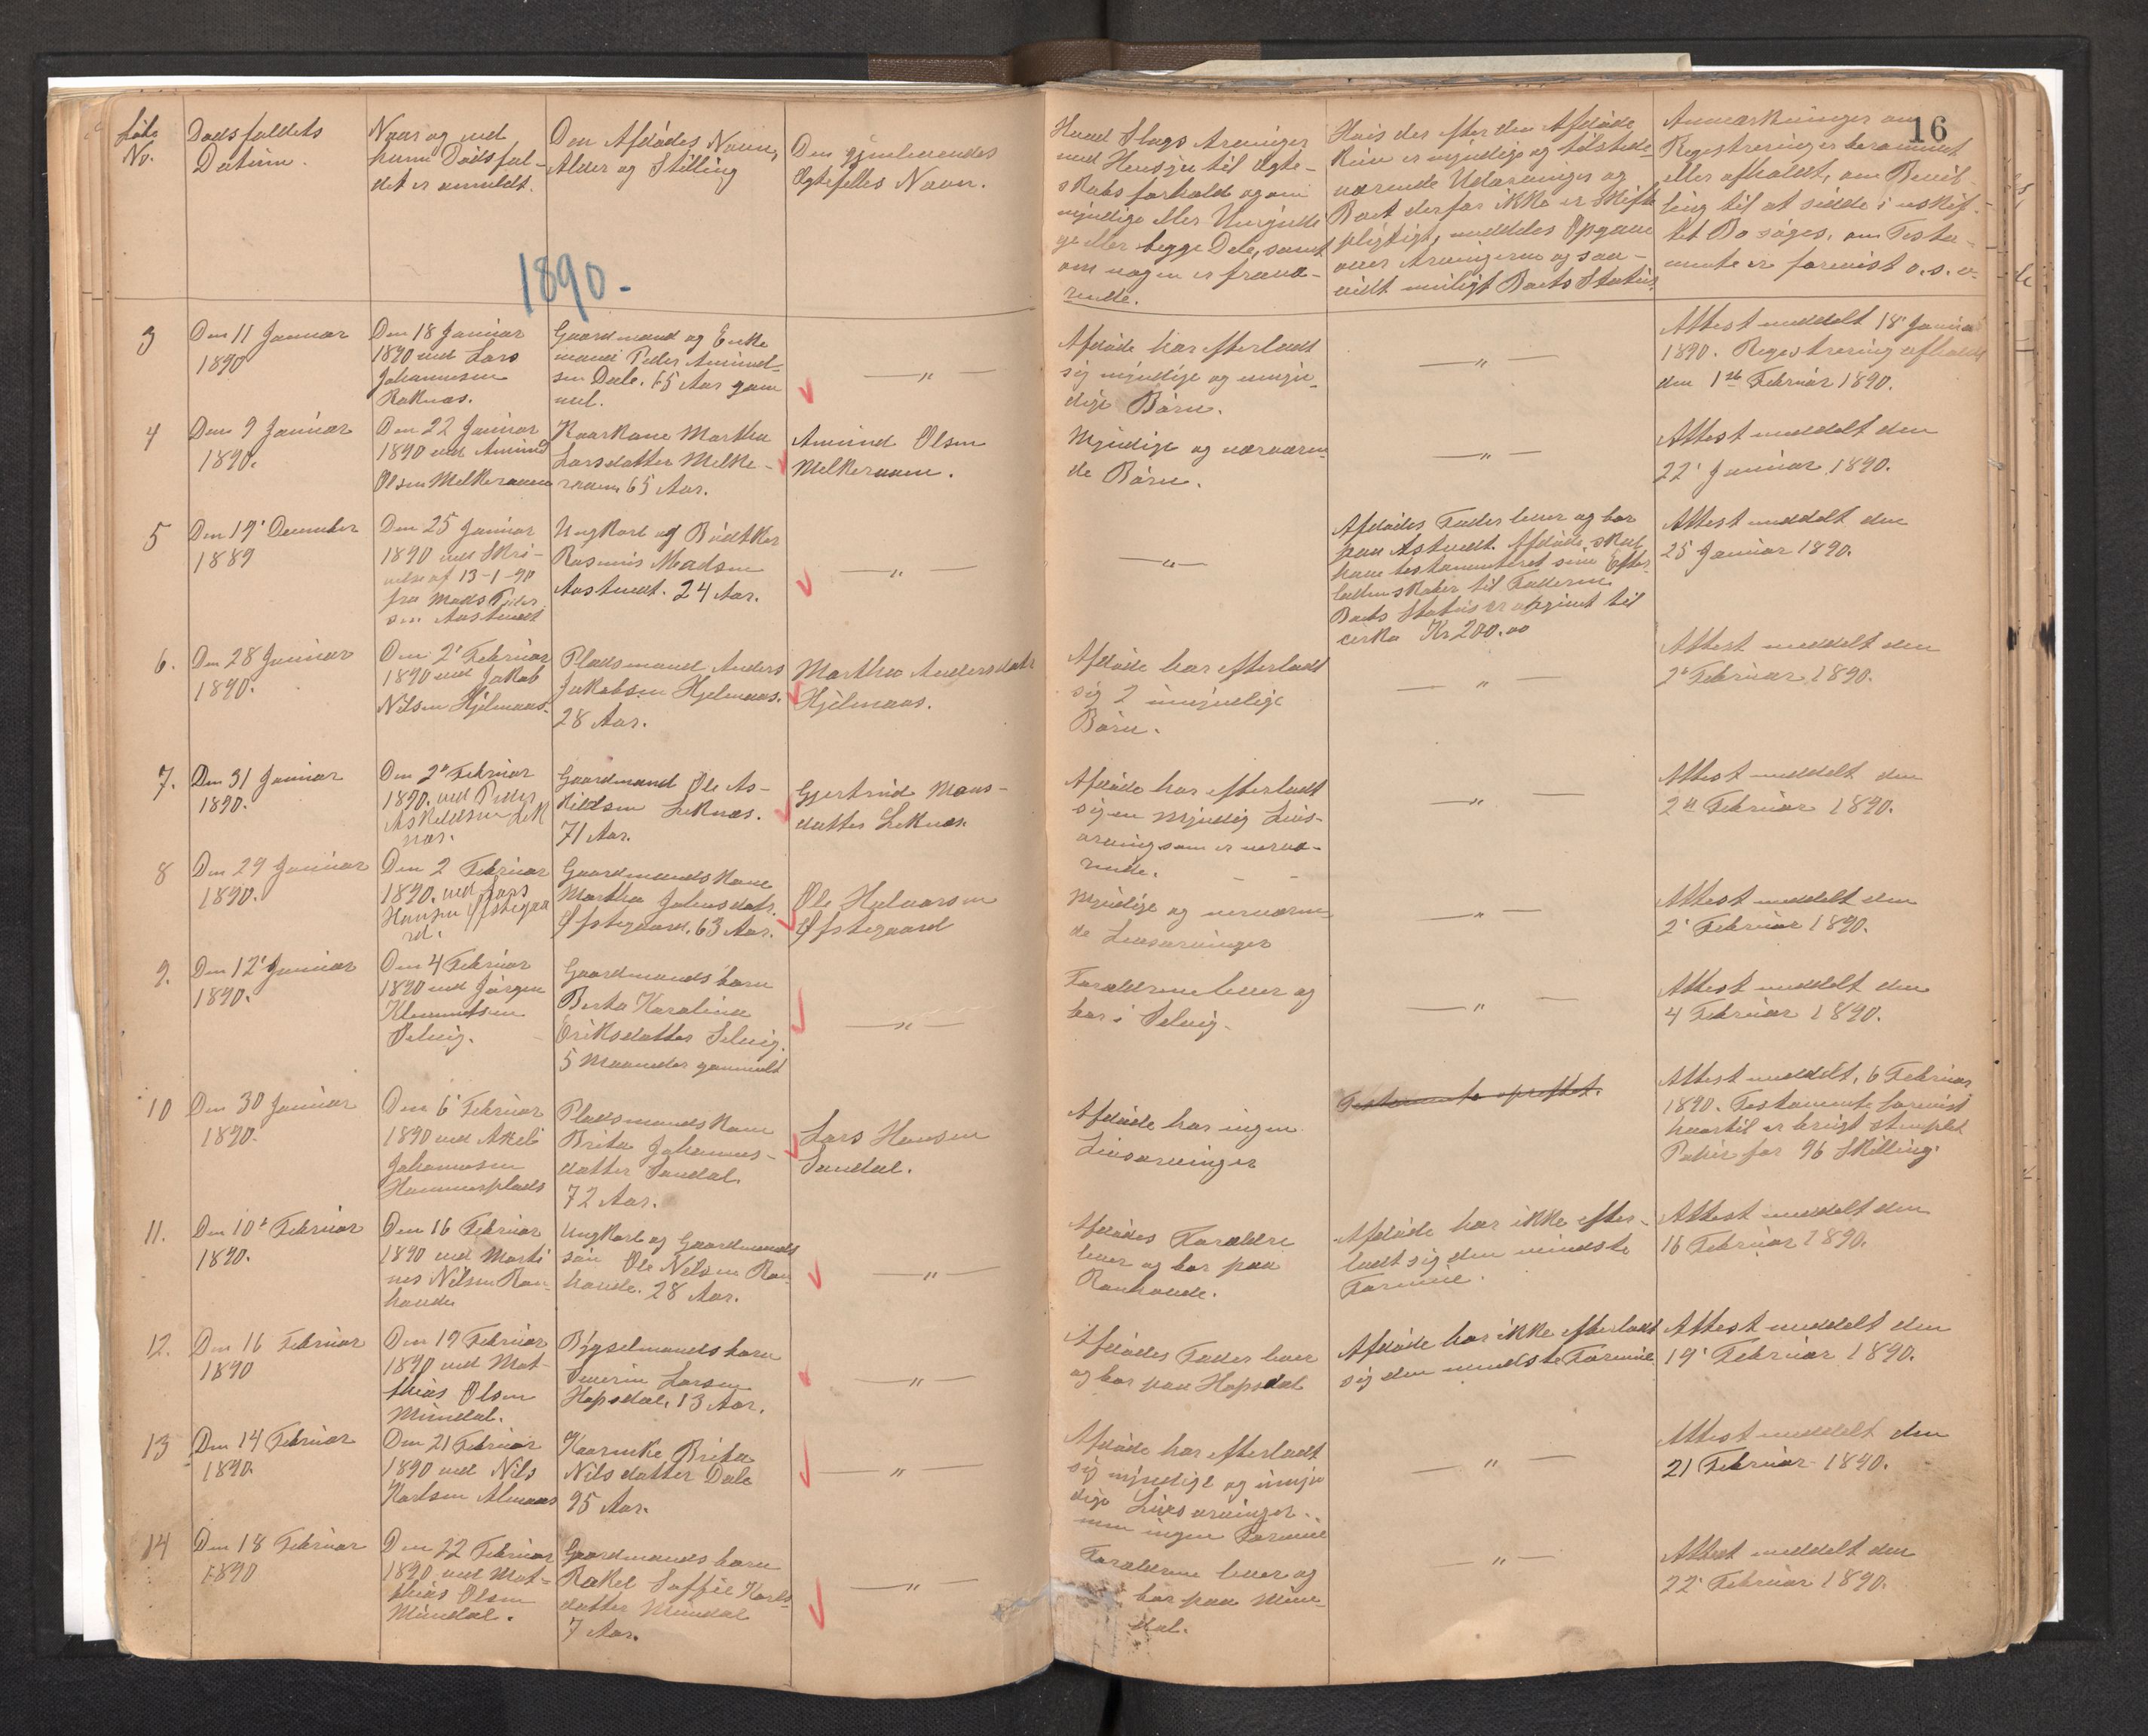 16
Løbe
No.
Dødsfaldets
Datum.
Naar og ved
hvem Dødsfal-
det er anmeldt.
Den Afdødes Navn,
Alder og Stilling
Den gjenlevendes
Ægtefelles Navn.
Hvad Slags Arvinger
med Hensyn til Ægte-
skabs forhold og om
myndige eller Umyndi
ge eller begge Dele, samt
om nogen er fravæ-
rende.
Hvis der efter den Afdøde
kun er myndige og tilstede-
værende Udarvinger og
Boet derfor ikke er skifte
pligtigt, meddeles Opgave
over Arvingerne og saa-
vidt muligt Boets Status.
Anmærkninger om
Registrering er berammet
eller afholdt, om Bevil-
ling til at sidde i uskif-
tet Bo søges, om Testa-
mente er forevist o.s.v.
1890.-
3
Den 11 Januar
1890
Den 18 Januar
1890 ved Lars
Johannesen
Raknæs.
Gaardmand og Enke
mand Peder Amund-
sen Dale. 65 Aar gam
mel.
— " —
Afdøde har efterladt
sig myndige og umyn-
dige Børn.
— " —
Attest meddelt 18' Januar
1890. Registrering afholdt
den 1ste Februar 1890.
4
Den 9 Januar
1890.
Den 22 Januar
1890 ved Amund
Olsen Melkeraaen
Kaarkone Martha
Larsdatter Melke-
raaen 65 Aar.
Amund Olsen
Melkeraaen.
Myndige og nærværen
de Børn.
— " —
Attest meddelt den
22' Januar 1890.
5
Den 19' December
1889
Den 25 Januar
1890 ved Skri-
velse af 13-1-90
fra Mads Peder
sen Aastvedt
Ungkarl og Bødtker
Rasmus Madsen
Aastvedt. 24 Aar.
— " —
— " —
Afdødes Fader lever og bor
paa Astvedt. Afdøde skal
have testamenteret sine Efter
ladenskaber til Faderen
Boets Status er opgivet til
cirka Kr 200.00
Attest meddelt den
25 Januar 1890.
6.
Den 28 Januar
1890.
Den 2' Februar
1890 ved Jakob
Nilsen Hjelmaas.
Pladsmand Anders
Jakobsen Hjelmaas.
28 Aar.
Martha Andersdatr
Hjelmaas.
Afdøde har efterladt
sig 2 umyndige
Børn.
— " —
Attest meddelt den
2' Februar 1890.
7.
Den 31 Januar
1890.
Den 2' Februar
1890. ved Peder
Askeldsen Lek
næs.
Gaardmand Ole As-
kildsen Leknæs.
71 Aar.
Gjertrud Mons-
datter Leknæs.
Afdøde har efterladt
sig en Myndig Livs-
arving som er nærvæ-
rende.
— " —
Attest meddelt den
2' Februar 1890.
8
Den 29 Januar
1890.
Den 2 Februar
1890. ved Lars
Hansen Øfstegaa
rd.
Gaardmandskone
Martha Johnsdatr.
Øfstegaard. 63 Aar.
Ole Halvorsen
Øfstegaard
Myndige og nærværen
de Livsarvinger
— " —
Attest meddelt den
2' Februar 1890.
9.
Den 12' Januar
1890.
Den 4 Februar
1890 ved Jørgen
Klemmetsen
Selvig.
Gaardmandsbarn
Berta Karoline
Eriksdatter Selvig.
5 Maaneder gammelt
— " —
Forældrene lever og
bor i Selvig.
— " —
Attest meddelt den
4 Februar 1890.
10
Den 30 Januar
1890.
Den 6' Februar
1890 ved
Johannesen
Hammersplads
Pladsmandskone
Brita Johannes-
datter Sandal.
72 Aar.
Lars Hansen
Sandal.
Afdøde har ingen
Livsarvinger
Testamente oprettet.
Attest meddelt, 6 Februar
1890. Testamente forevist
hvortil er brugt stemplet
Papir for 96 Skilling.
11.
Den 10' Februar
1890.
Den 16 Februar
1890 ved Marti
nus Nilsen Ron
hovde
Ungkarl og Gaardmands
søn Ole Nilsen Ron
hovde. 28 Aar.
— " —
Afdødes Forældre
lever og bor paa
Ronhovde.
Afdøde har ikke efter-
ladt sig den mindste
Formue.
Attest meddelt den
16 Februar 1890.
12.
Den 16 Februar
1890
Den 19 Februar
1890 ved Mat-
thias Olsen
Mundal.
Bygselmandsbarn
Severin Larsen
Hopsdal. 13 Aar.
— " —
Afdødes Fader lever
og bor paa Hopsdal
Afdøde har ikke efterladt
sig den mindste Formue.
Attest meddelt den
19' Februar 1890.
13
Den 14 Februar
1890.
Den 21 Februar
1890 ved Nils
Karlsen Almaas
Kaarenke Brita
Nilsdatter Dale
95 Aar.
— " —
Afdøde har efterladt
sig myndige og umyn
dige Livsarvinger.
men ingen Formue
— " —
Attest meddelt den
21 Februar 1890.
14
Den 18 Februar
1890
Den 22 Februar
1890 ved Mat-
thias Olsen
Mundal.
Gaardmandsbarn
Rakel Soffie Karls-
datter Mundal
7 Aar.
— " —
Forældrene lever og
bor paa Mun-
dal.
— " —
Attest meddelt den
22' Februar 1890.